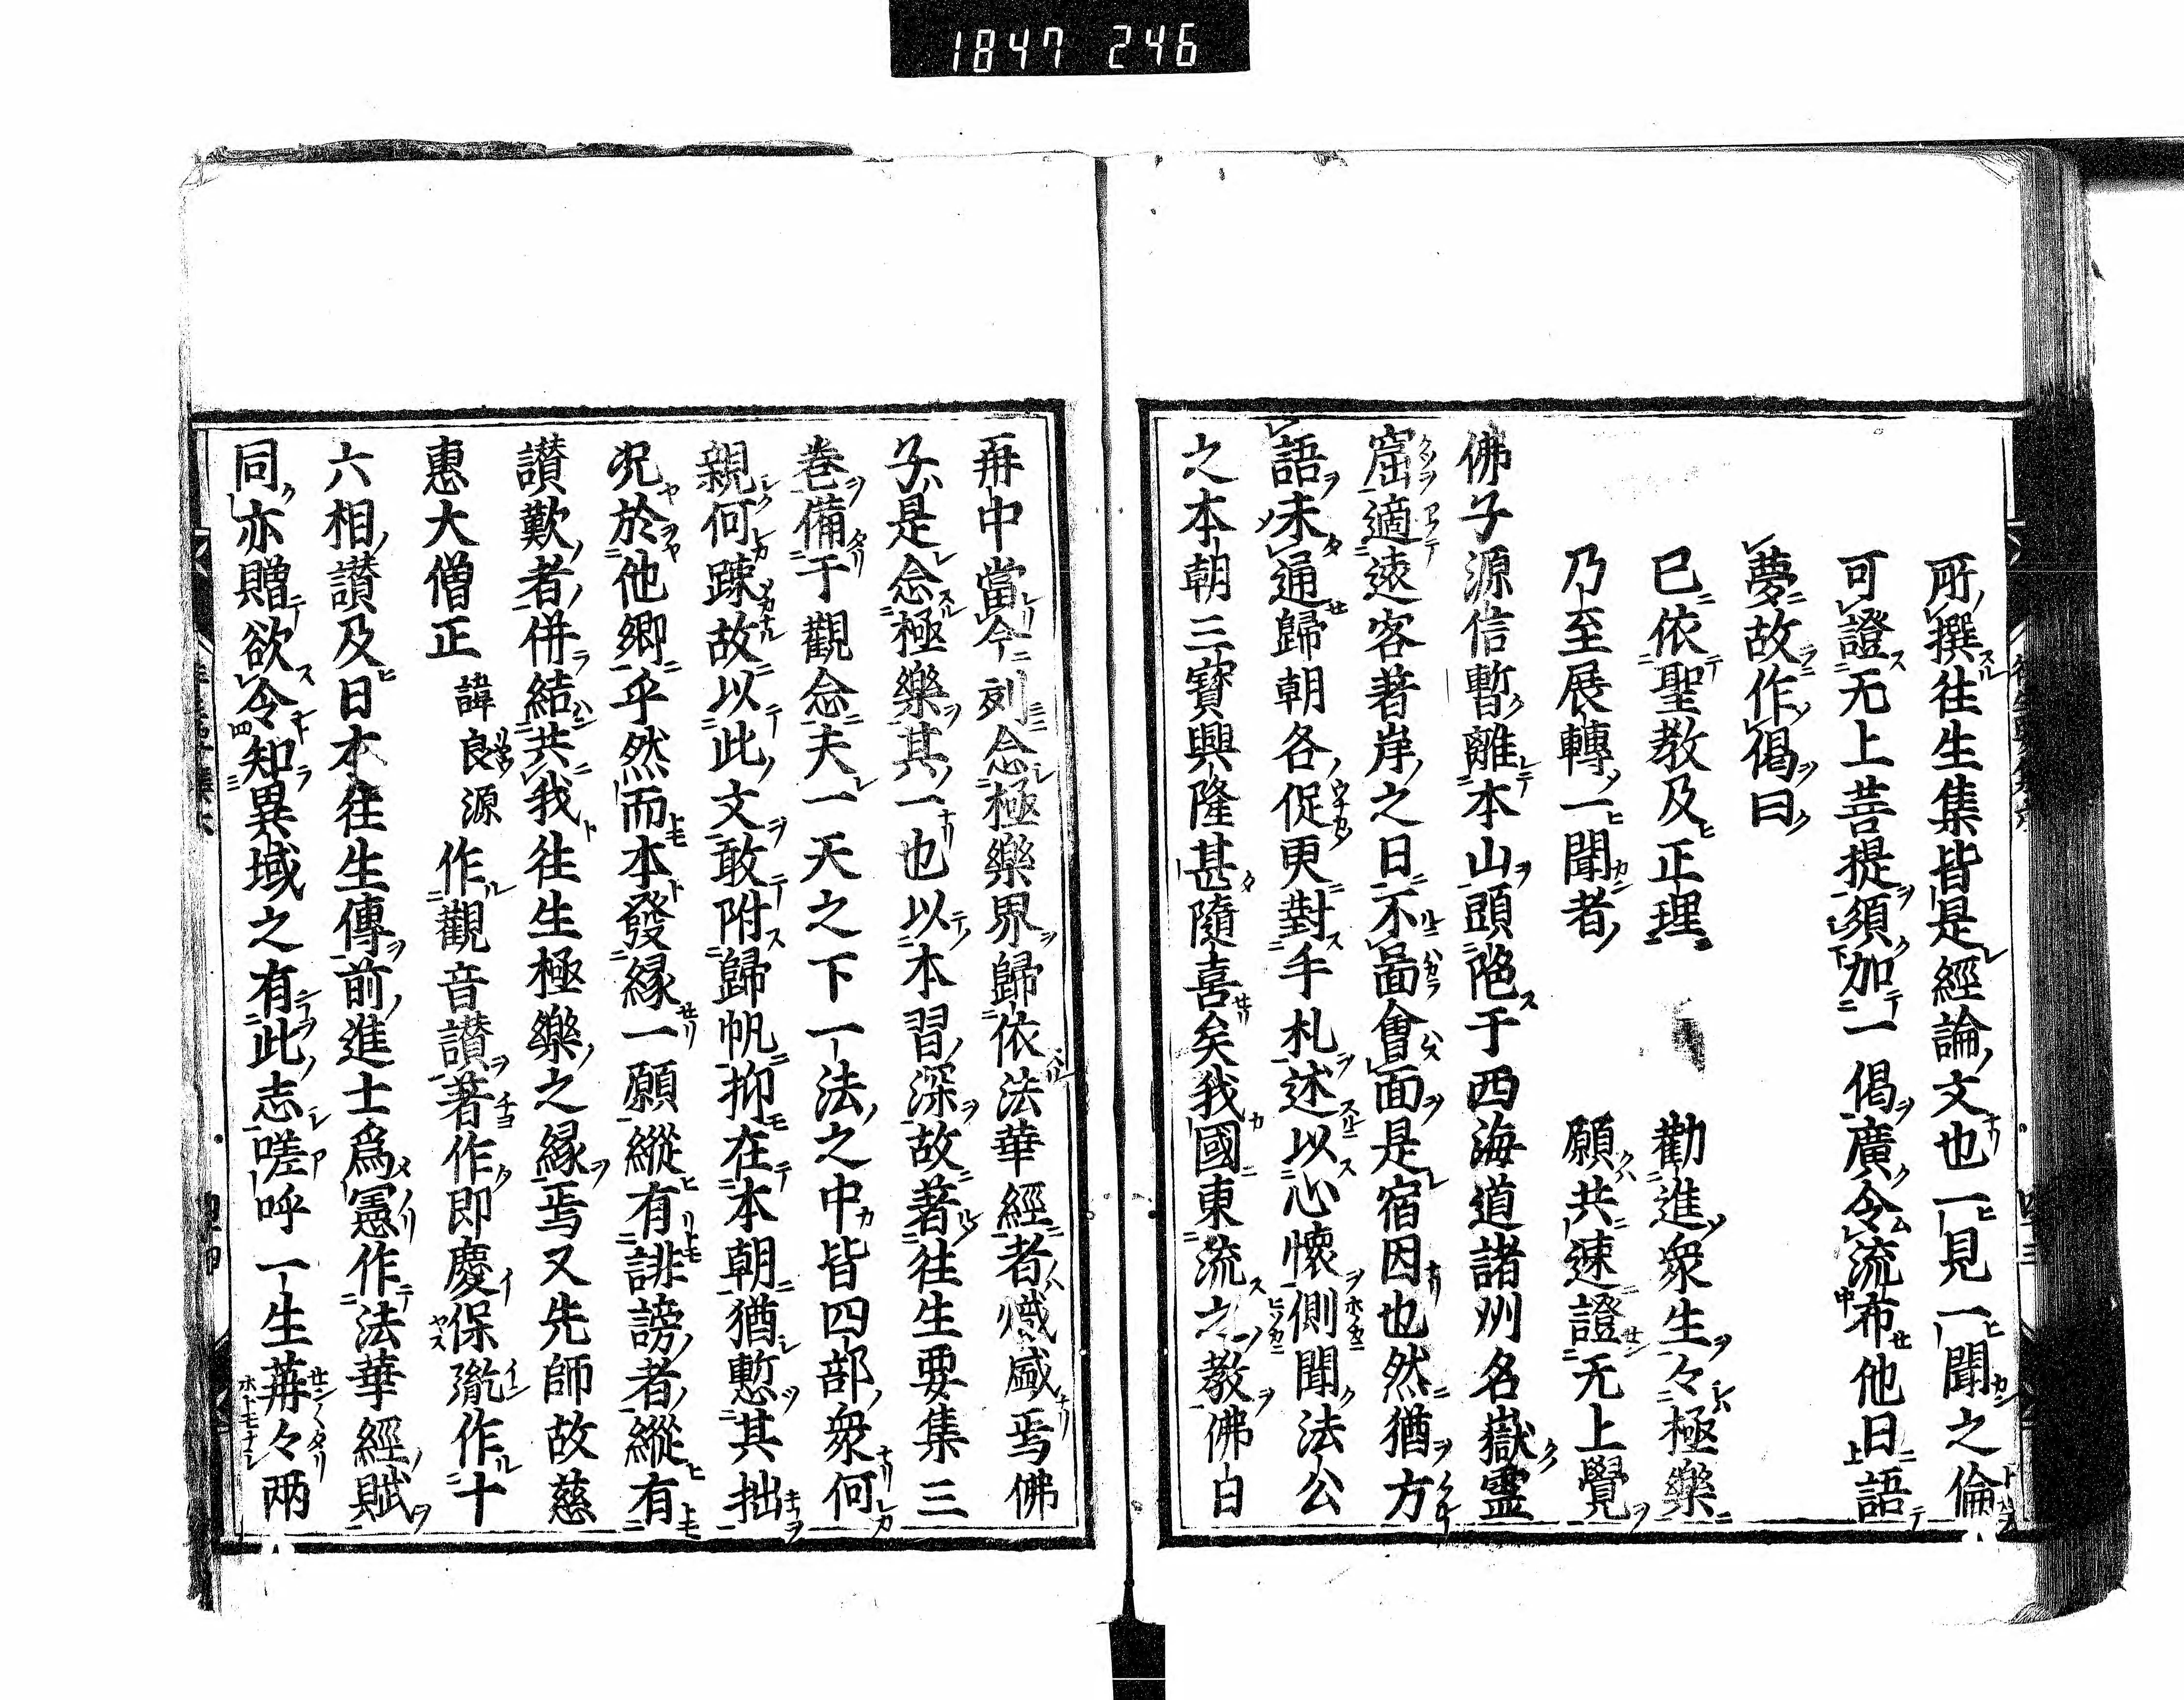 1847 246
所撰往生集皆是經論文也一見一聞之倫
可證无上菩提須加一偈廣令流布他日語
夢故作偈曰
已依聖教及正理 勸進衆生々極樂
乃至展轉一聞者 願共速證无上覺
佛子源信暫離本山頭陁于西海道諸州名嶽靈
窟適遠客著岸之日不啚會面是宿因也然猶方
語未通歸朝各促更對手札述以心懷側聞法公
之本朝三寳興隆甚隨喜矣我國東流之教佛白
再中當今刻念極樂界歸依法華經者熾盛焉佛
子是念極樂其一也以本習深故著往生要集三
巻備于觀念夫一天之下一法之中皆四部衆何
親何踈故以此文敢附歸帆抑在本朝猶慙其拙
况於他郷乎然而本發縁一願縱有誹謗者縱有
讃歎者併結共我往生極樂之縁焉又先師故慈
惠大僧正 諱良源 作觀音讃著作郎慶保胤作十
六相讃及日本往生傳前進士爲憲作法華經賦
同亦贈欲令知異域之有此志嗟呼一生苒々兩